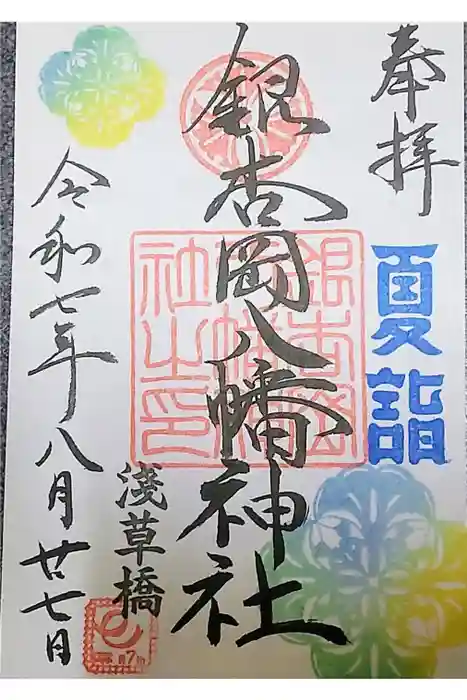 奉拝
夏詣
銀杏岡八幡神社
銀杏岡八幡神社之印
淺草橋
令和七年八月廿七日